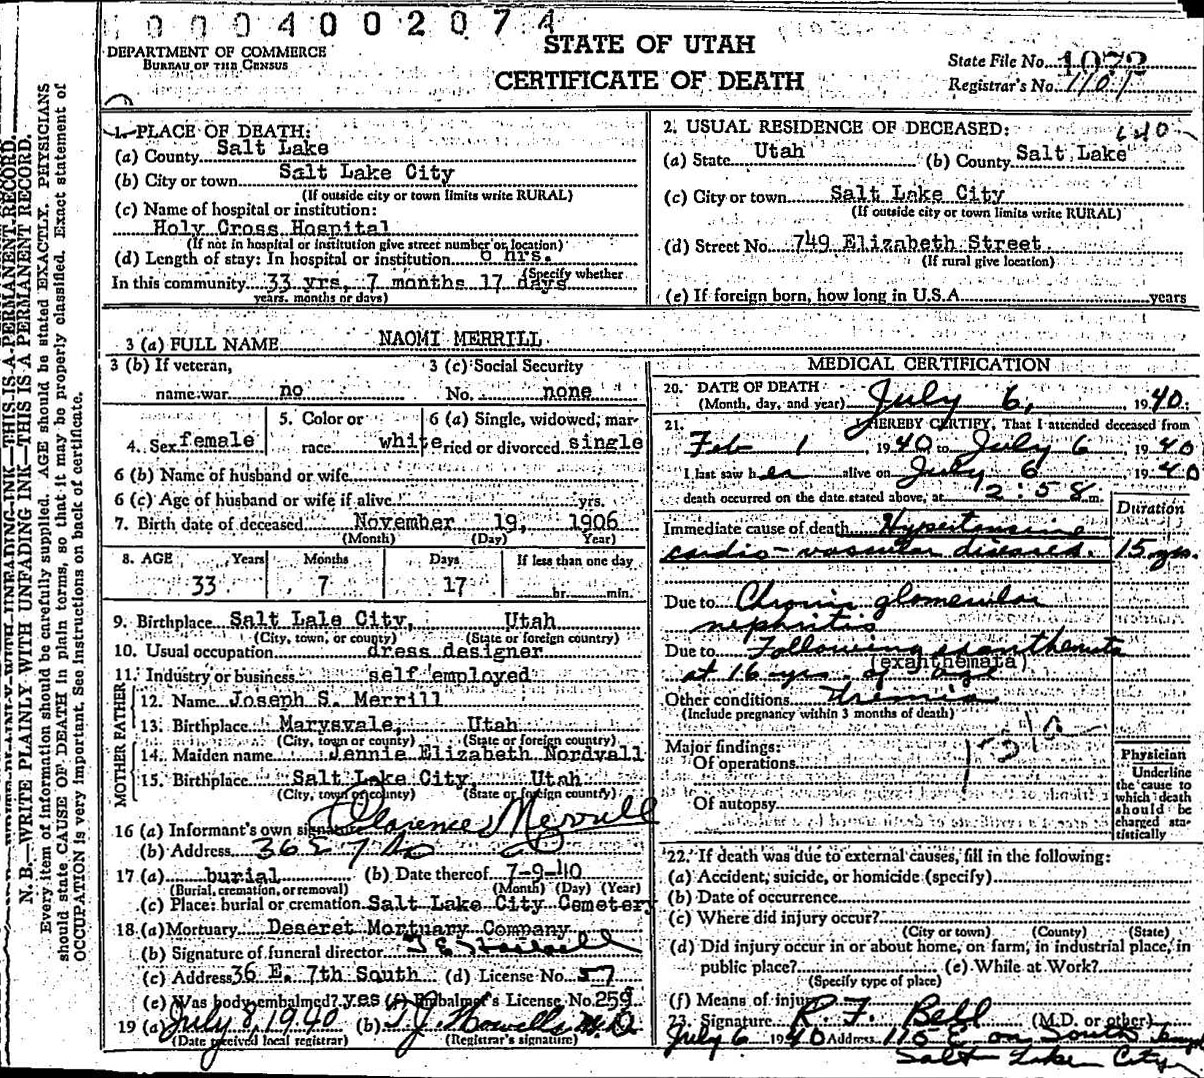 0004002074
DEPARTMENT OF COMMERCE
BUREAU OF THE CENSUS
STATE OF UTAH
CERTIFICATE OF DEATH
State File No. 1072
Registrar's No. 1101
N. B.—WRITE PLAINLY WITH UNFADING INK—THIS IS A PERMANENT RECORD.
Every item of information should be carefully supplied. AGE should be stated EXACTLY. PHYSICIANS
should state CAUSE OF DEATH in plain terms, so that it may be properly classified. Exact statement of
OCCUPATION is very important. See instructions on back of certificate.
1. PLACE OF DEATH:
(a) County Salt Lake
(b) City or town Salt Lake City
(If outside city or town limits write RURAL)
(c) Name of hospital or institution:
Holy Cross Hospital
(If not in hospital or institution give street number or location)
(d) Length of stay: In hospital or institution 6 hrs.
(Specify whether
In this community 33 yrs, 7 months 17 days
years. months or days)
2. USUAL RESIDENCE OF DECEASED:
(a) State Utah (b) County Salt Lake
(c) City or town Salt Lake City
(If outside city or town limits write RURAL)
(d) Street No. 749 Elizabeth Street
(If rural give location)
(e) If foreign born, how long in U.S.A. years
3 (a) FULL NAME NAOMI MERRILL
3 (b) If veteran,
name war no
3 (c) Social Security
No. none
4. Sex female
5. Color or
race white
6 (a) Single, widowed, mar-
ried or divorced single
6 (b) Name of husband or wife
6 (c) Age of husband or wife if alive yrs.
7. Birth date of deceased November 19, 1906
(Month) (Day) Year)
8. AGE Years Months Days If less than one day
33 7 17 hr. min.
9. Birthplace Salt Lale City, Utah
(City, town, or county) (State or foreign country)
10. Usual occupation dress designer
11. Industry or business self employed
FATHER
12. Name Joseph S. Merrill
13. Birthplace Marysvale, Utah
(City, town or county) (State or foreign country)
MOTHER
14. Maiden name Jennie Elizabeth Nordvall
15. Birthplace Salt Lake City Utah
(City, town or county) (State or foreign country)
16 (a) Informant's own signature Clarence Merrill
(b) Address 36 E 7 So
17 (a) burial (b) Date thereof 7-9-40
(Burial, cremation, or removal) (Month) (Day) (Year)
(c) Place: burial or cremation Salt Lake City Cemetery
18 (a) Mortuary Deseret Mortuary Company
(b) Signature of funeral director
(c) Address 36 E. 7th South (d) License No. 57
(e) Was body embalmed? yes (f) Embalmer's License No. 259
19 (a) July 8, 1940 (b) T.J. Howells M.D
(Date received local registrar) (Registrar's signature)
MEDICAL CERTIFICATION
20. DATE OF DEATH
(Month, day, and year) July 6, 1940.
21. I HEREBY CERTIFY, That I attended deceased from
Feb 1, 1940 to July 6, 1940
I last saw her alive on July 6, 1940
death occurred on the date stated above, at 12:58 m.
Duration
Immediate cause of death Hypertensive
cardio-vascular disease. 15 yrs.
Due to Chronic glomerular
nephritis
Due to Following exanthemata
(exanthemata)
at 16 yrs. of age
Other conditions Uremia
(Include pregnancy within 3 months of death)
Major findings:
Of operations
Of autopsy
Physician
Underline
the cause to
which death
should be
charged sta-
tistically
22. If death was due to external causes, fill in the following:
(a) Accident, suicide, or homicide (specify)
(b) Date of occurrence
(c) Where did injury occur?
(City or town) (County) (State)
(d) Did injury occur in or about home, on farm, in industrial place, in
public place? (e) While at Work?
(Specify type of place)
(f) Means of injury
23. Signature R. F. Bell (M.D. or other)
July 6 1940 Address 115 E on South Temple
Salt Lake City